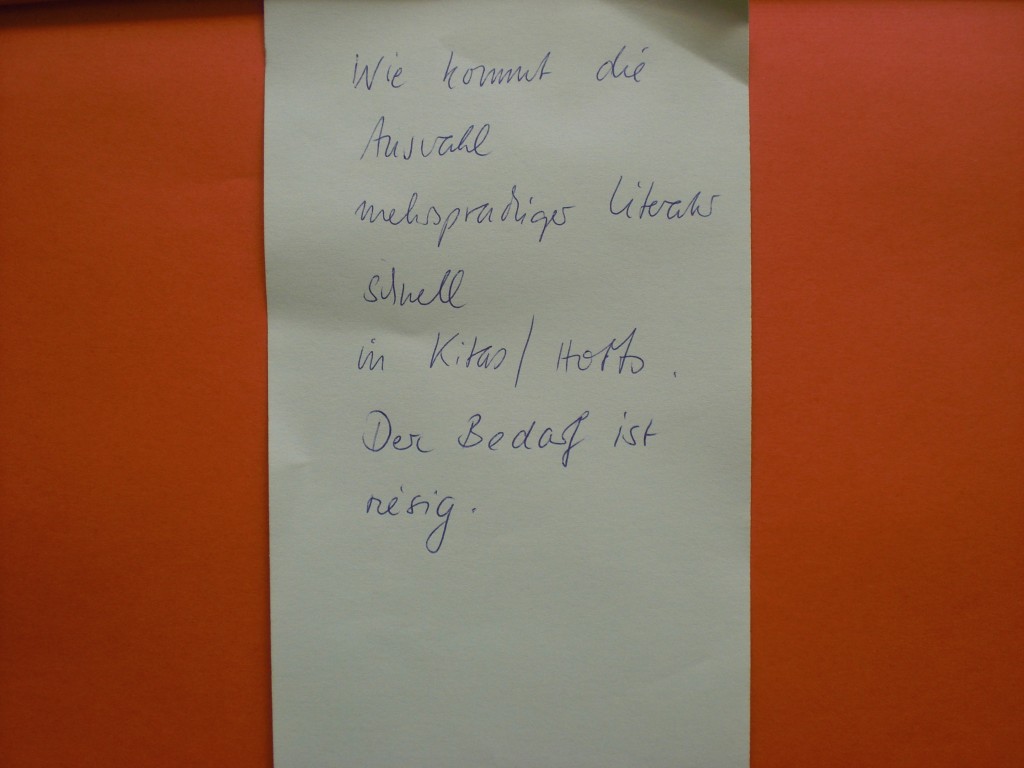 Wie kommt die
Auswahl
mehrsprachiger Literatur
schnell
in Kitas / Horts .
Der Bedarf ist
riesig.